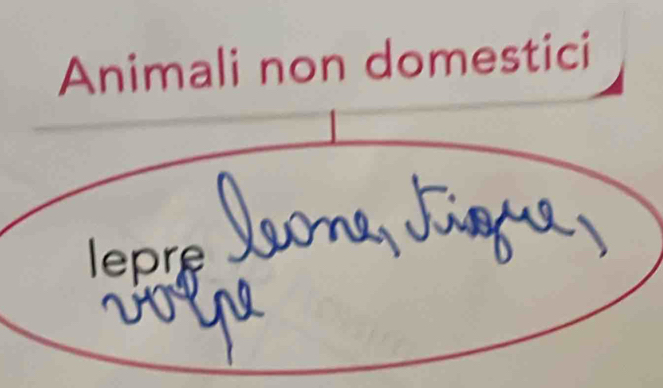 Animali non domestici
lepre leone, tigre,
volpe